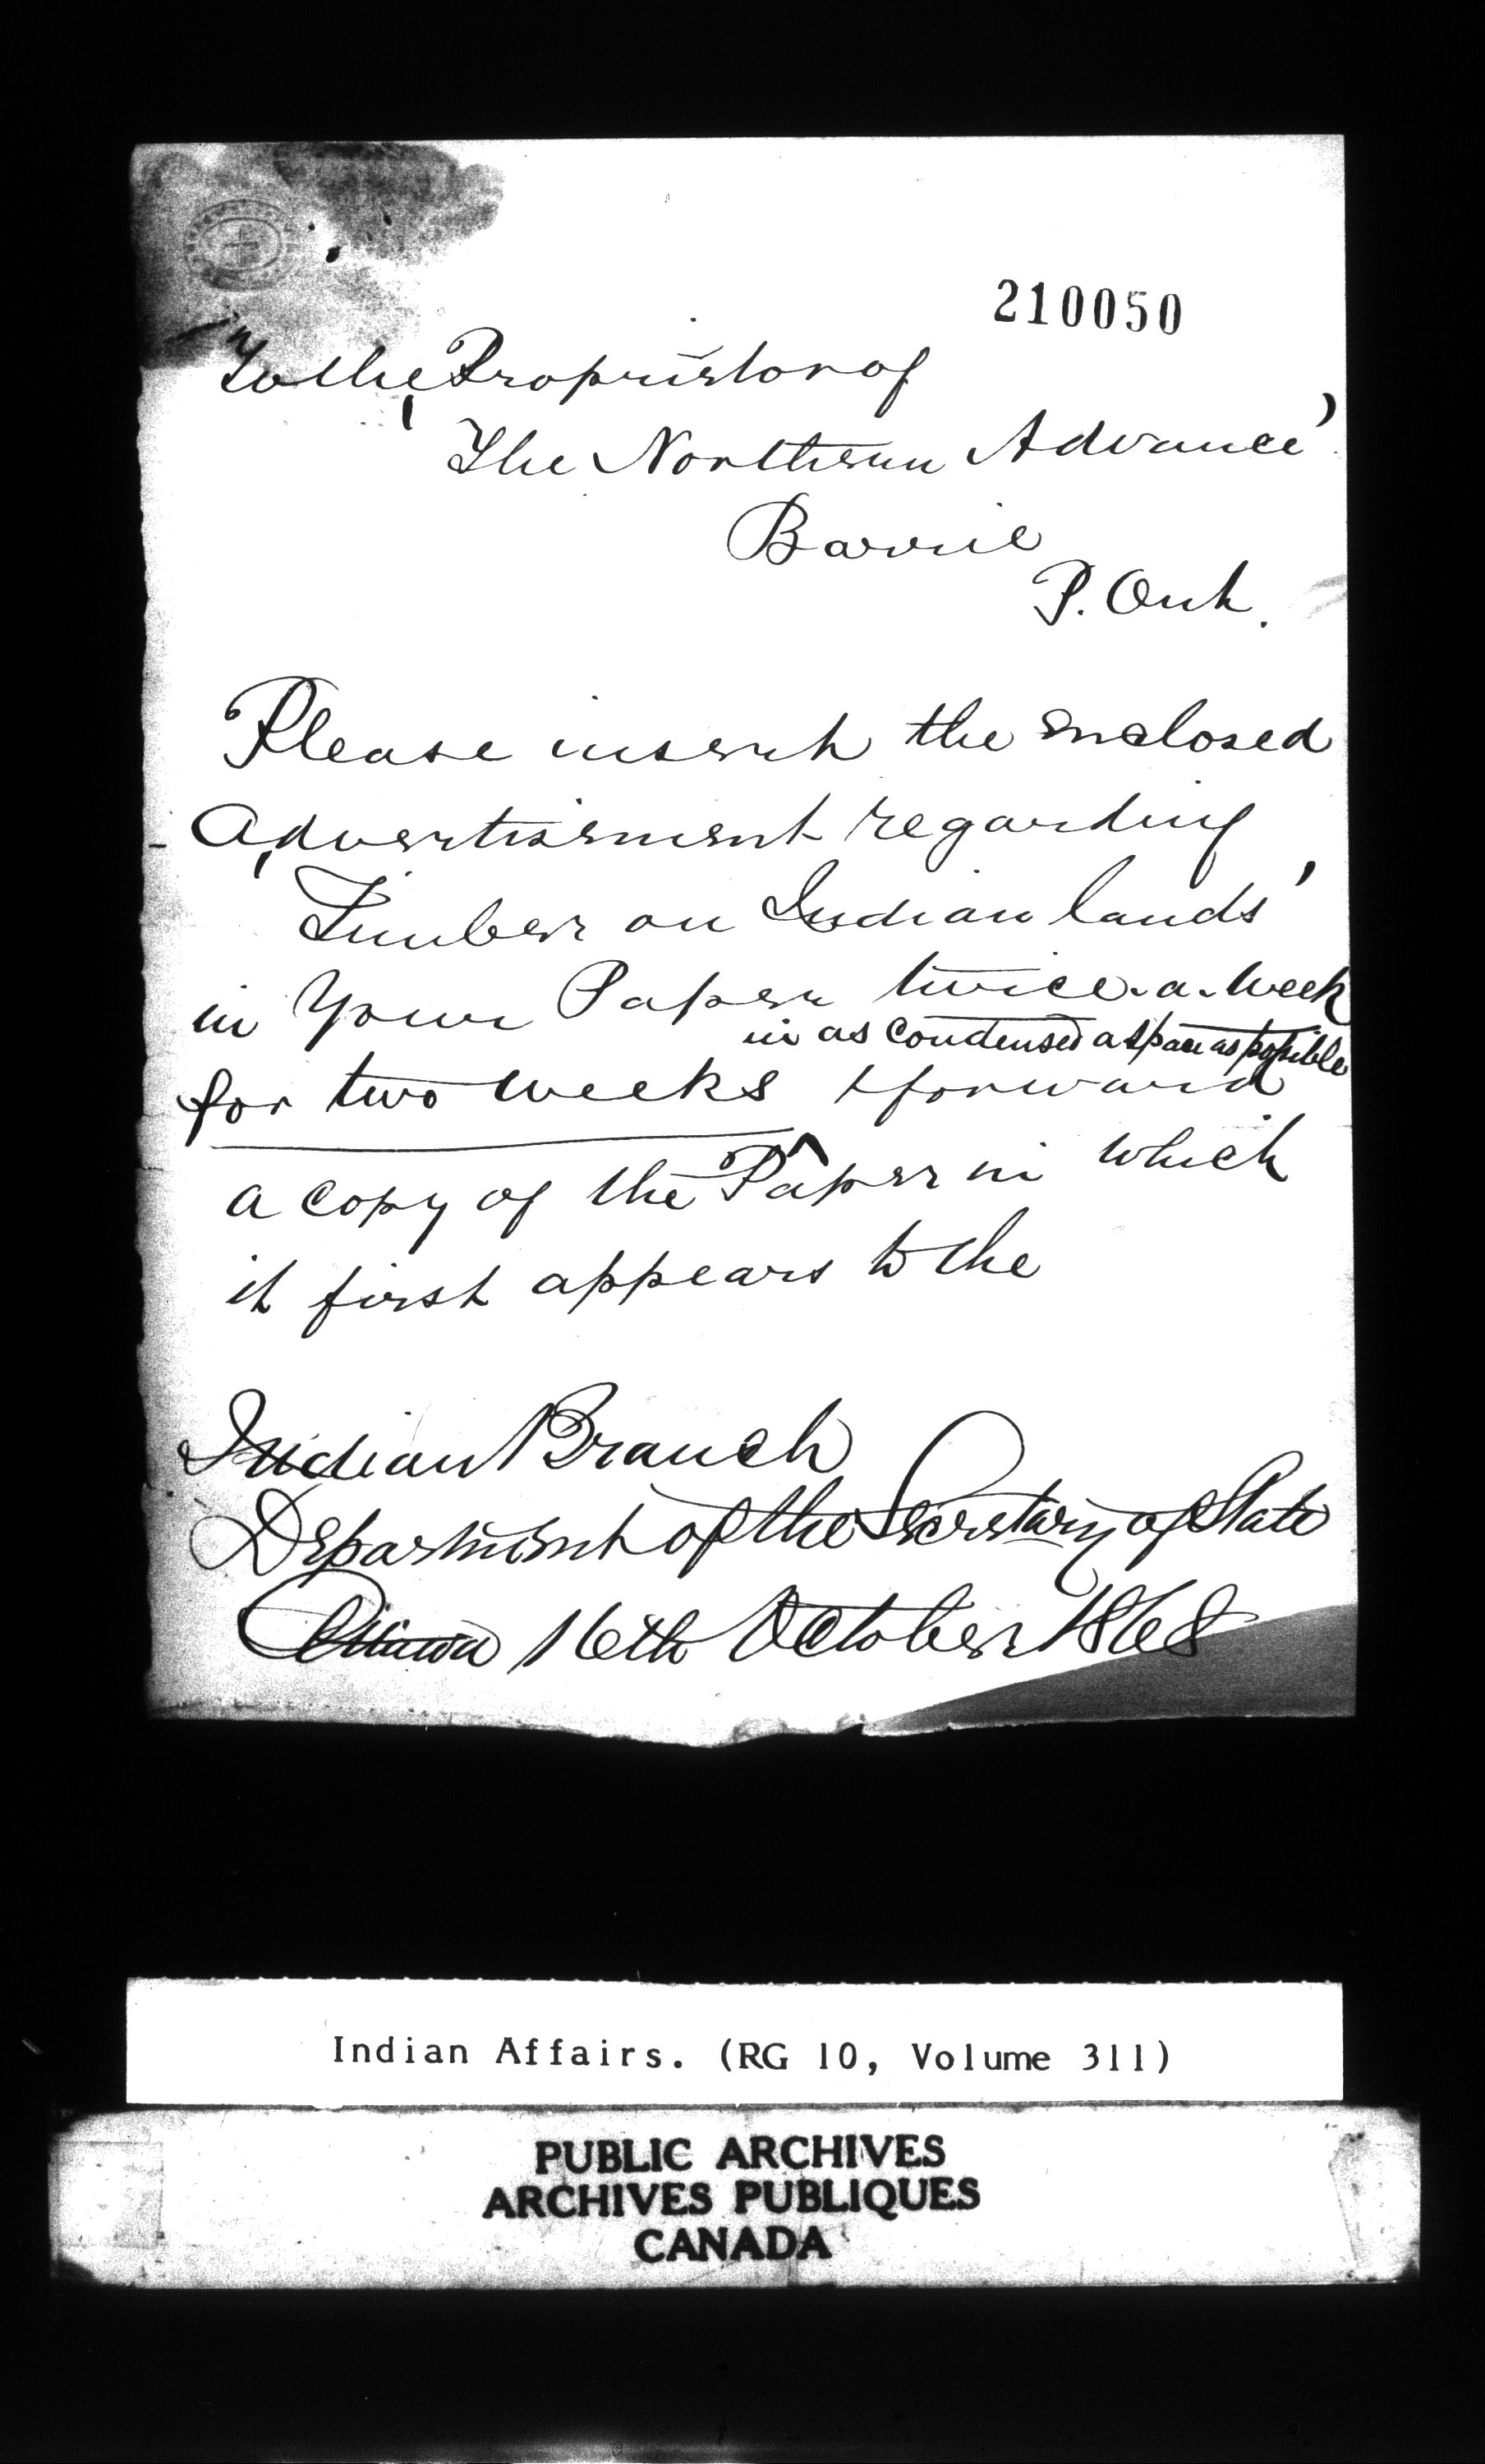 210050
To the Proprietor of
'The Northern Advance'
Barrie
P. Ont.
Please insert the enclosed
Advertisement regarding
'Timber on Indian lands'
in Your Paper twice-a-week
in as condensed a space as possible
for two weeks & forward
a copy of the Paper in which
it first appears to the
Indian Branch
Department of the Secretary of State
Ottawa 16th October 1868
Indian Affairs. (RG 10, Volume 311)
PUBLIC ARCHIVES
ARCHIVES PUBLIQUES
CANADA